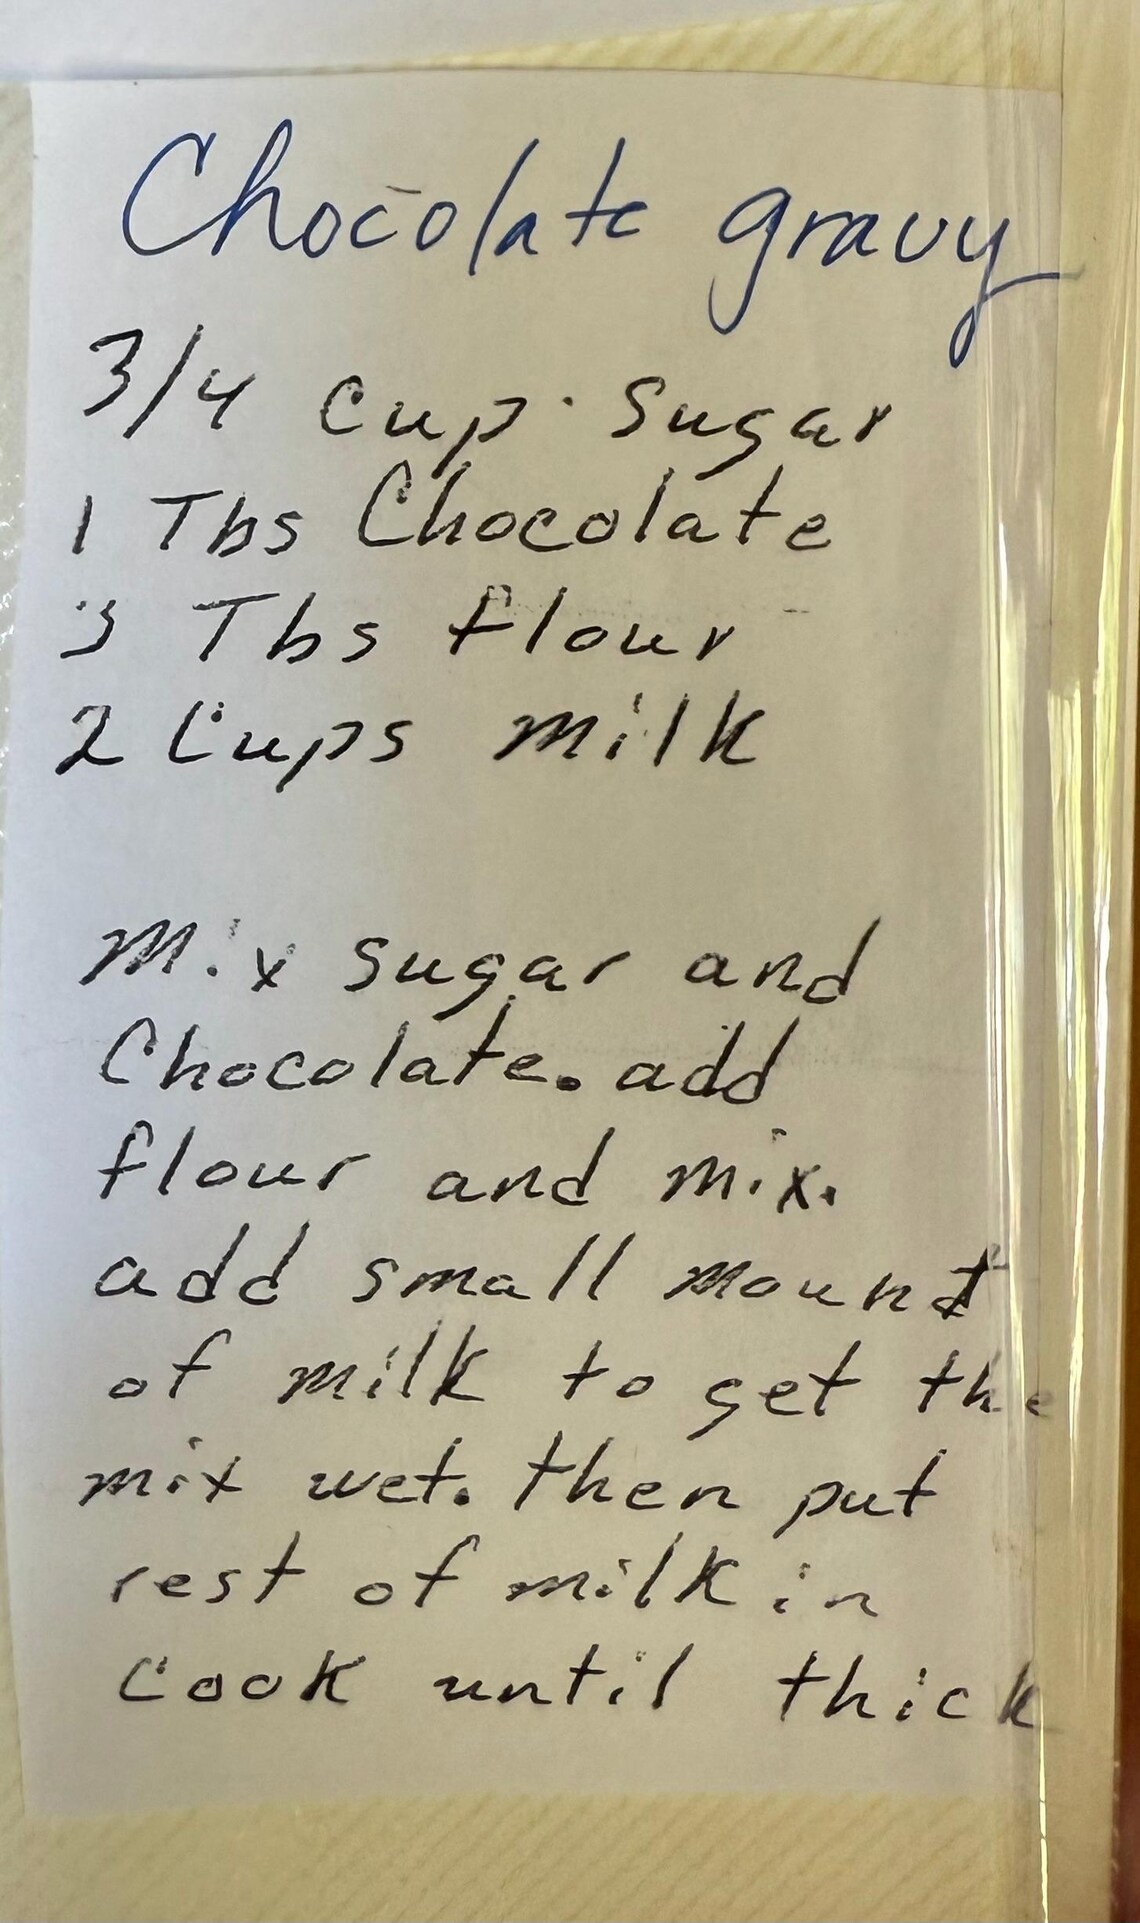 Chocolate gravy
3/4 cup sugar
1 Tbs Chocolate
3 Tbs flour
2 Cups milk
Mix sugar and
Chocolate. add
flour and mix.
add small mount
of milk to get the
mix wet. then put
rest of milk in
Cook until thick